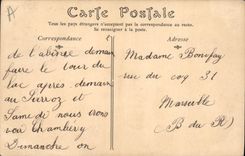 A
Carte Postale
Tous les pays étrangers n'acceptent pas la correspondance au recto.
Se renseigner à la poste.
Correspondance
Adresse
de l'abime demain
faire le tour du
lac apres demain
au Pierroz et
Samedi nous irons
voir Chambéry
Dimanche on
Madame Bonifay
rue du coq 31
Marseille
(B du R)